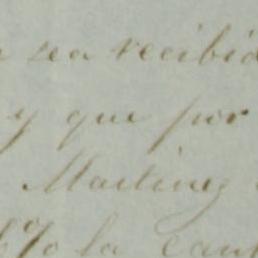 sea recibid
y que por
Martinez
la cant